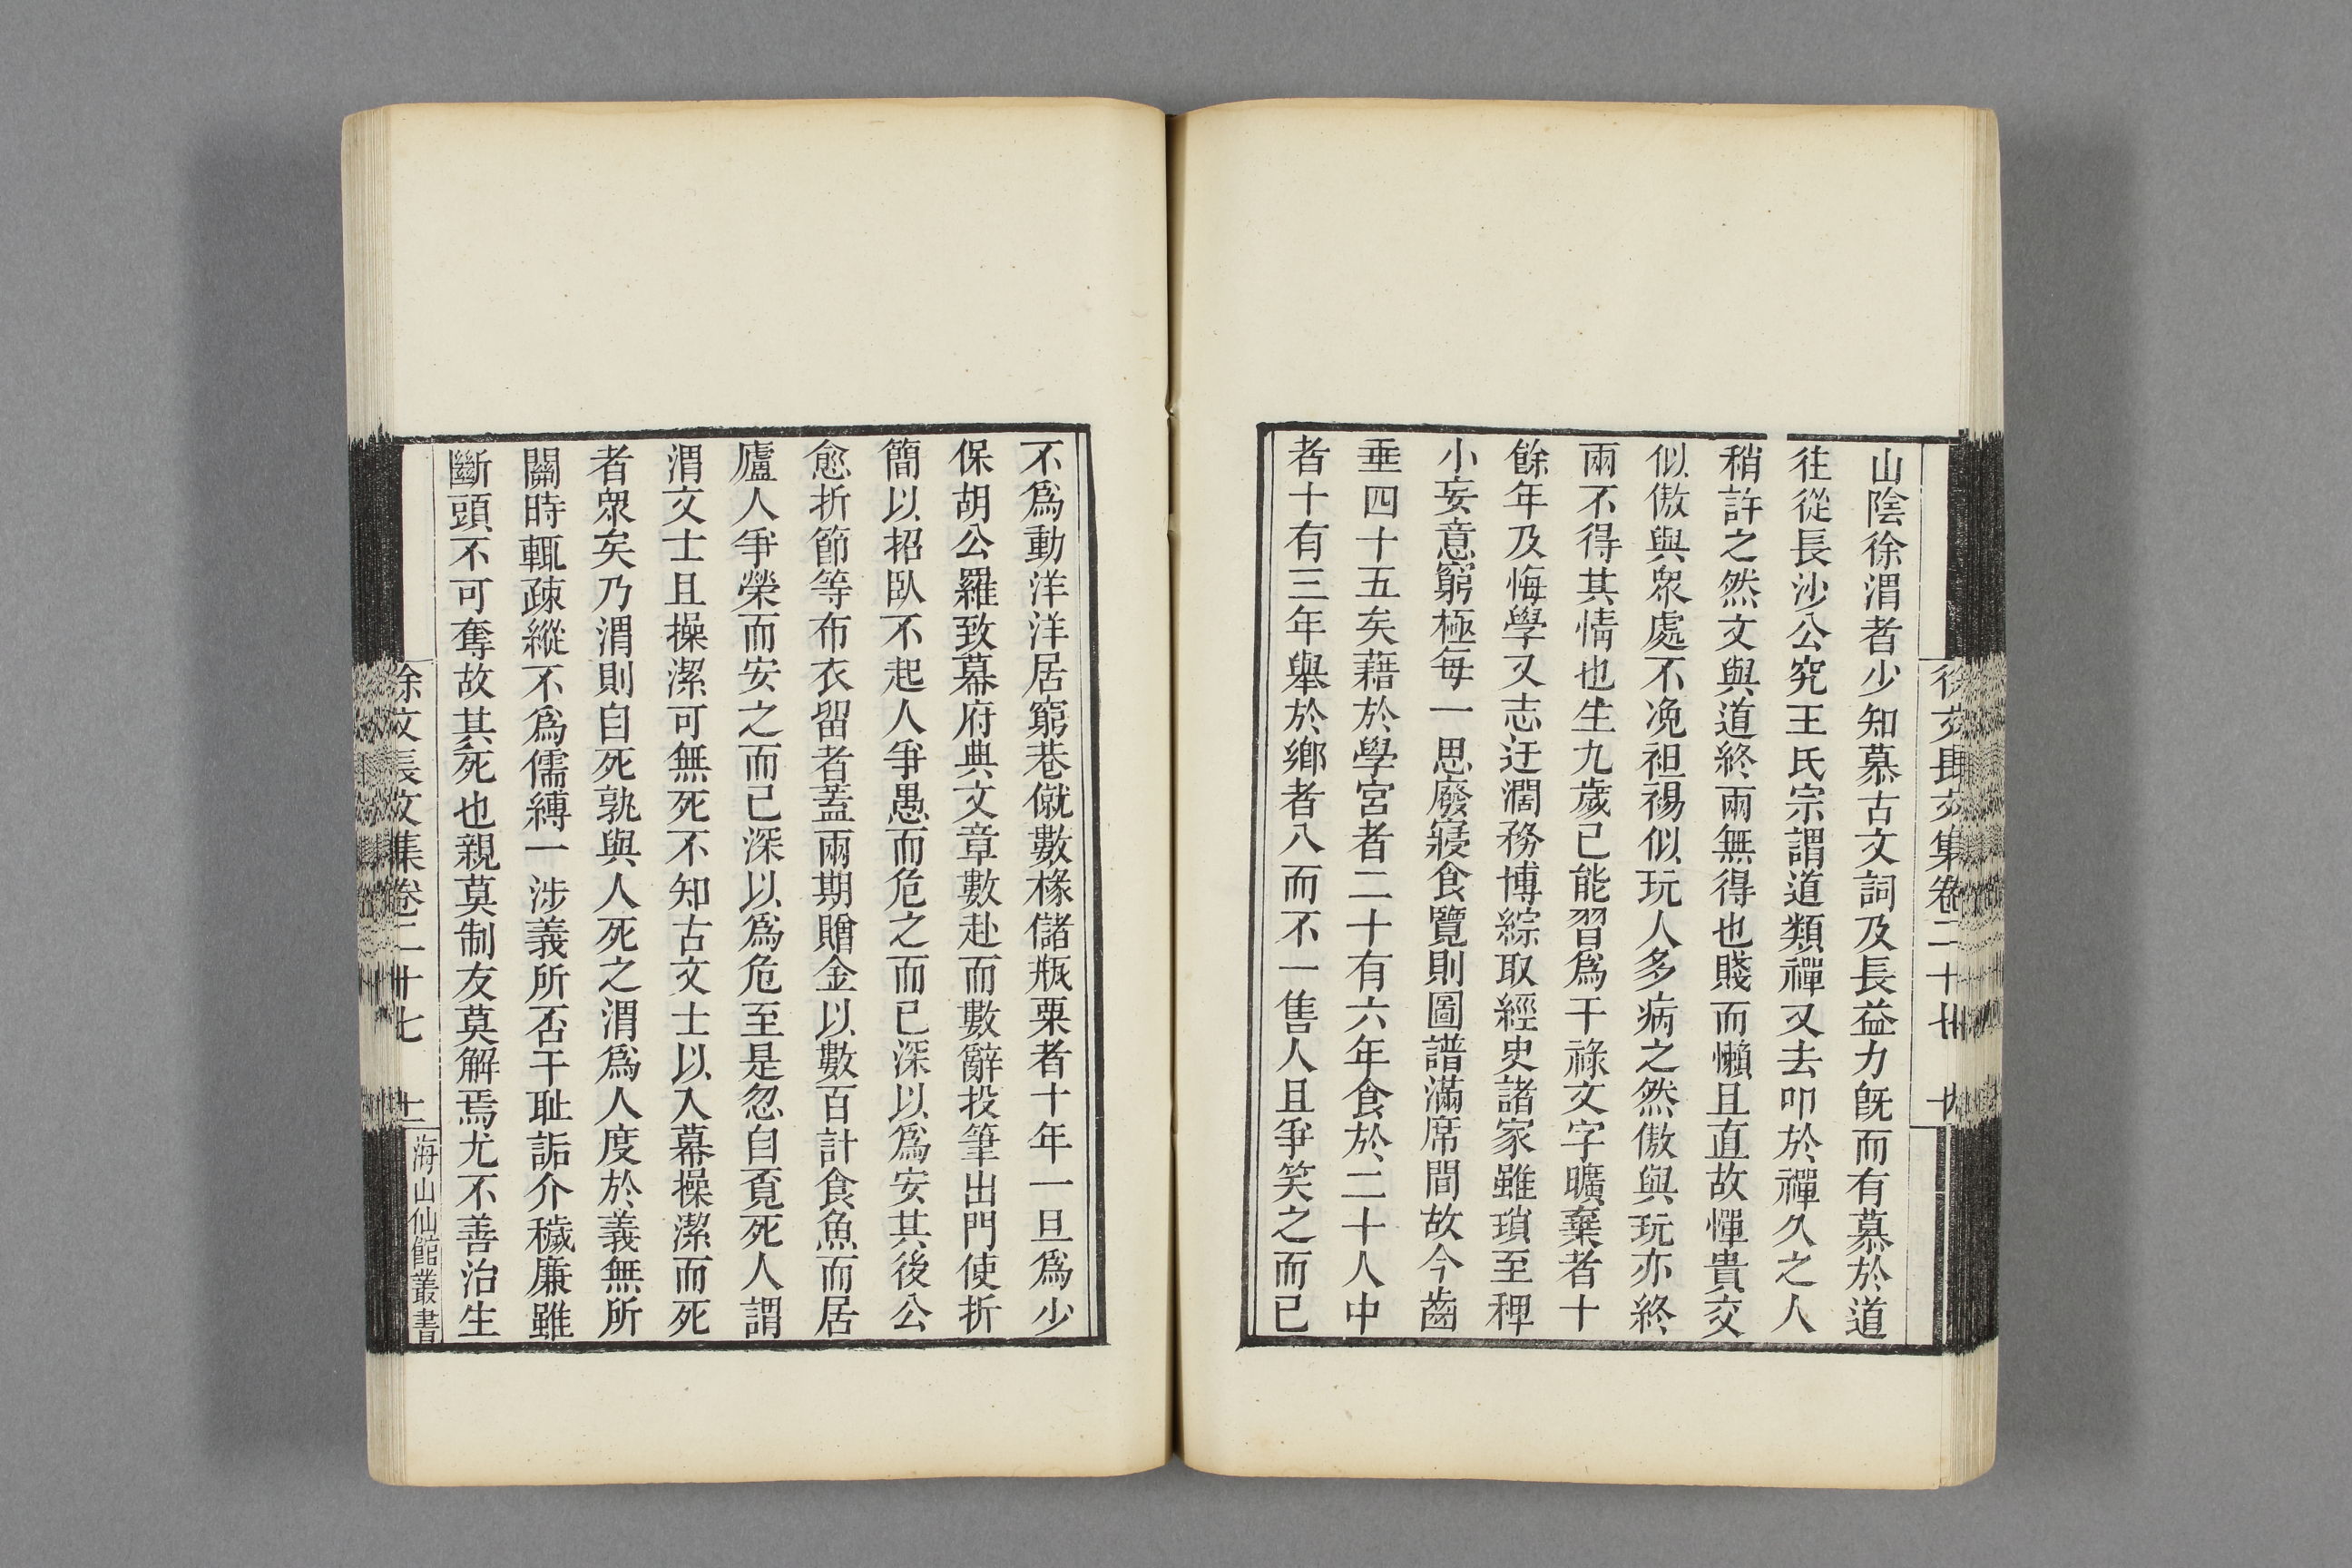 山陰徐渭者少知慕古文詞及長益力既而有慕於道
往從長沙公究王氏宗謂道類禪又去叩於禪久之人
稍許之然文與道終兩無得也賤而懶且直故憚貴交
似傲與眾處不浼袒裼似玩人多病之然傲與玩亦終
兩不得其情也生九歲已能習為干祿文字曠棄者十
餘年及悔學又志迂濶務博綜取經史諸家雖瑣至稗
小妄意窮極每一思廢寢食覽則圖譜滿席間故今齒
垂四十五矣藉於學宮者二十有六年食於二十人中
者十有三年舉於鄉者八而不一售人且爭笑之而已
不為動洋洋居窮巷僦數椽儲瓶粟者十年一旦為少
保胡公羅致幕府典文章數赴而數辭投筆出門使折
簡以招臥不起人爭愚而危之而已深以為安其後公
愈折節等布衣留者蓋兩期贈金以數百計食魚而居
廬人爭榮而安之而已深以為危至是忽自覓死人謂
渭文士且操潔可無死不知古文士以入幕操潔而死
者眾矣乃渭則自死孰與人死之渭為人度於義無所
關時輒疎縱不為儒縛一涉義所否干恥詬介穢廉雖
斷頭不可奪故其死也親莫制友莫解焉尤不善治生
徐文長文集卷二十七
海山仙館叢書